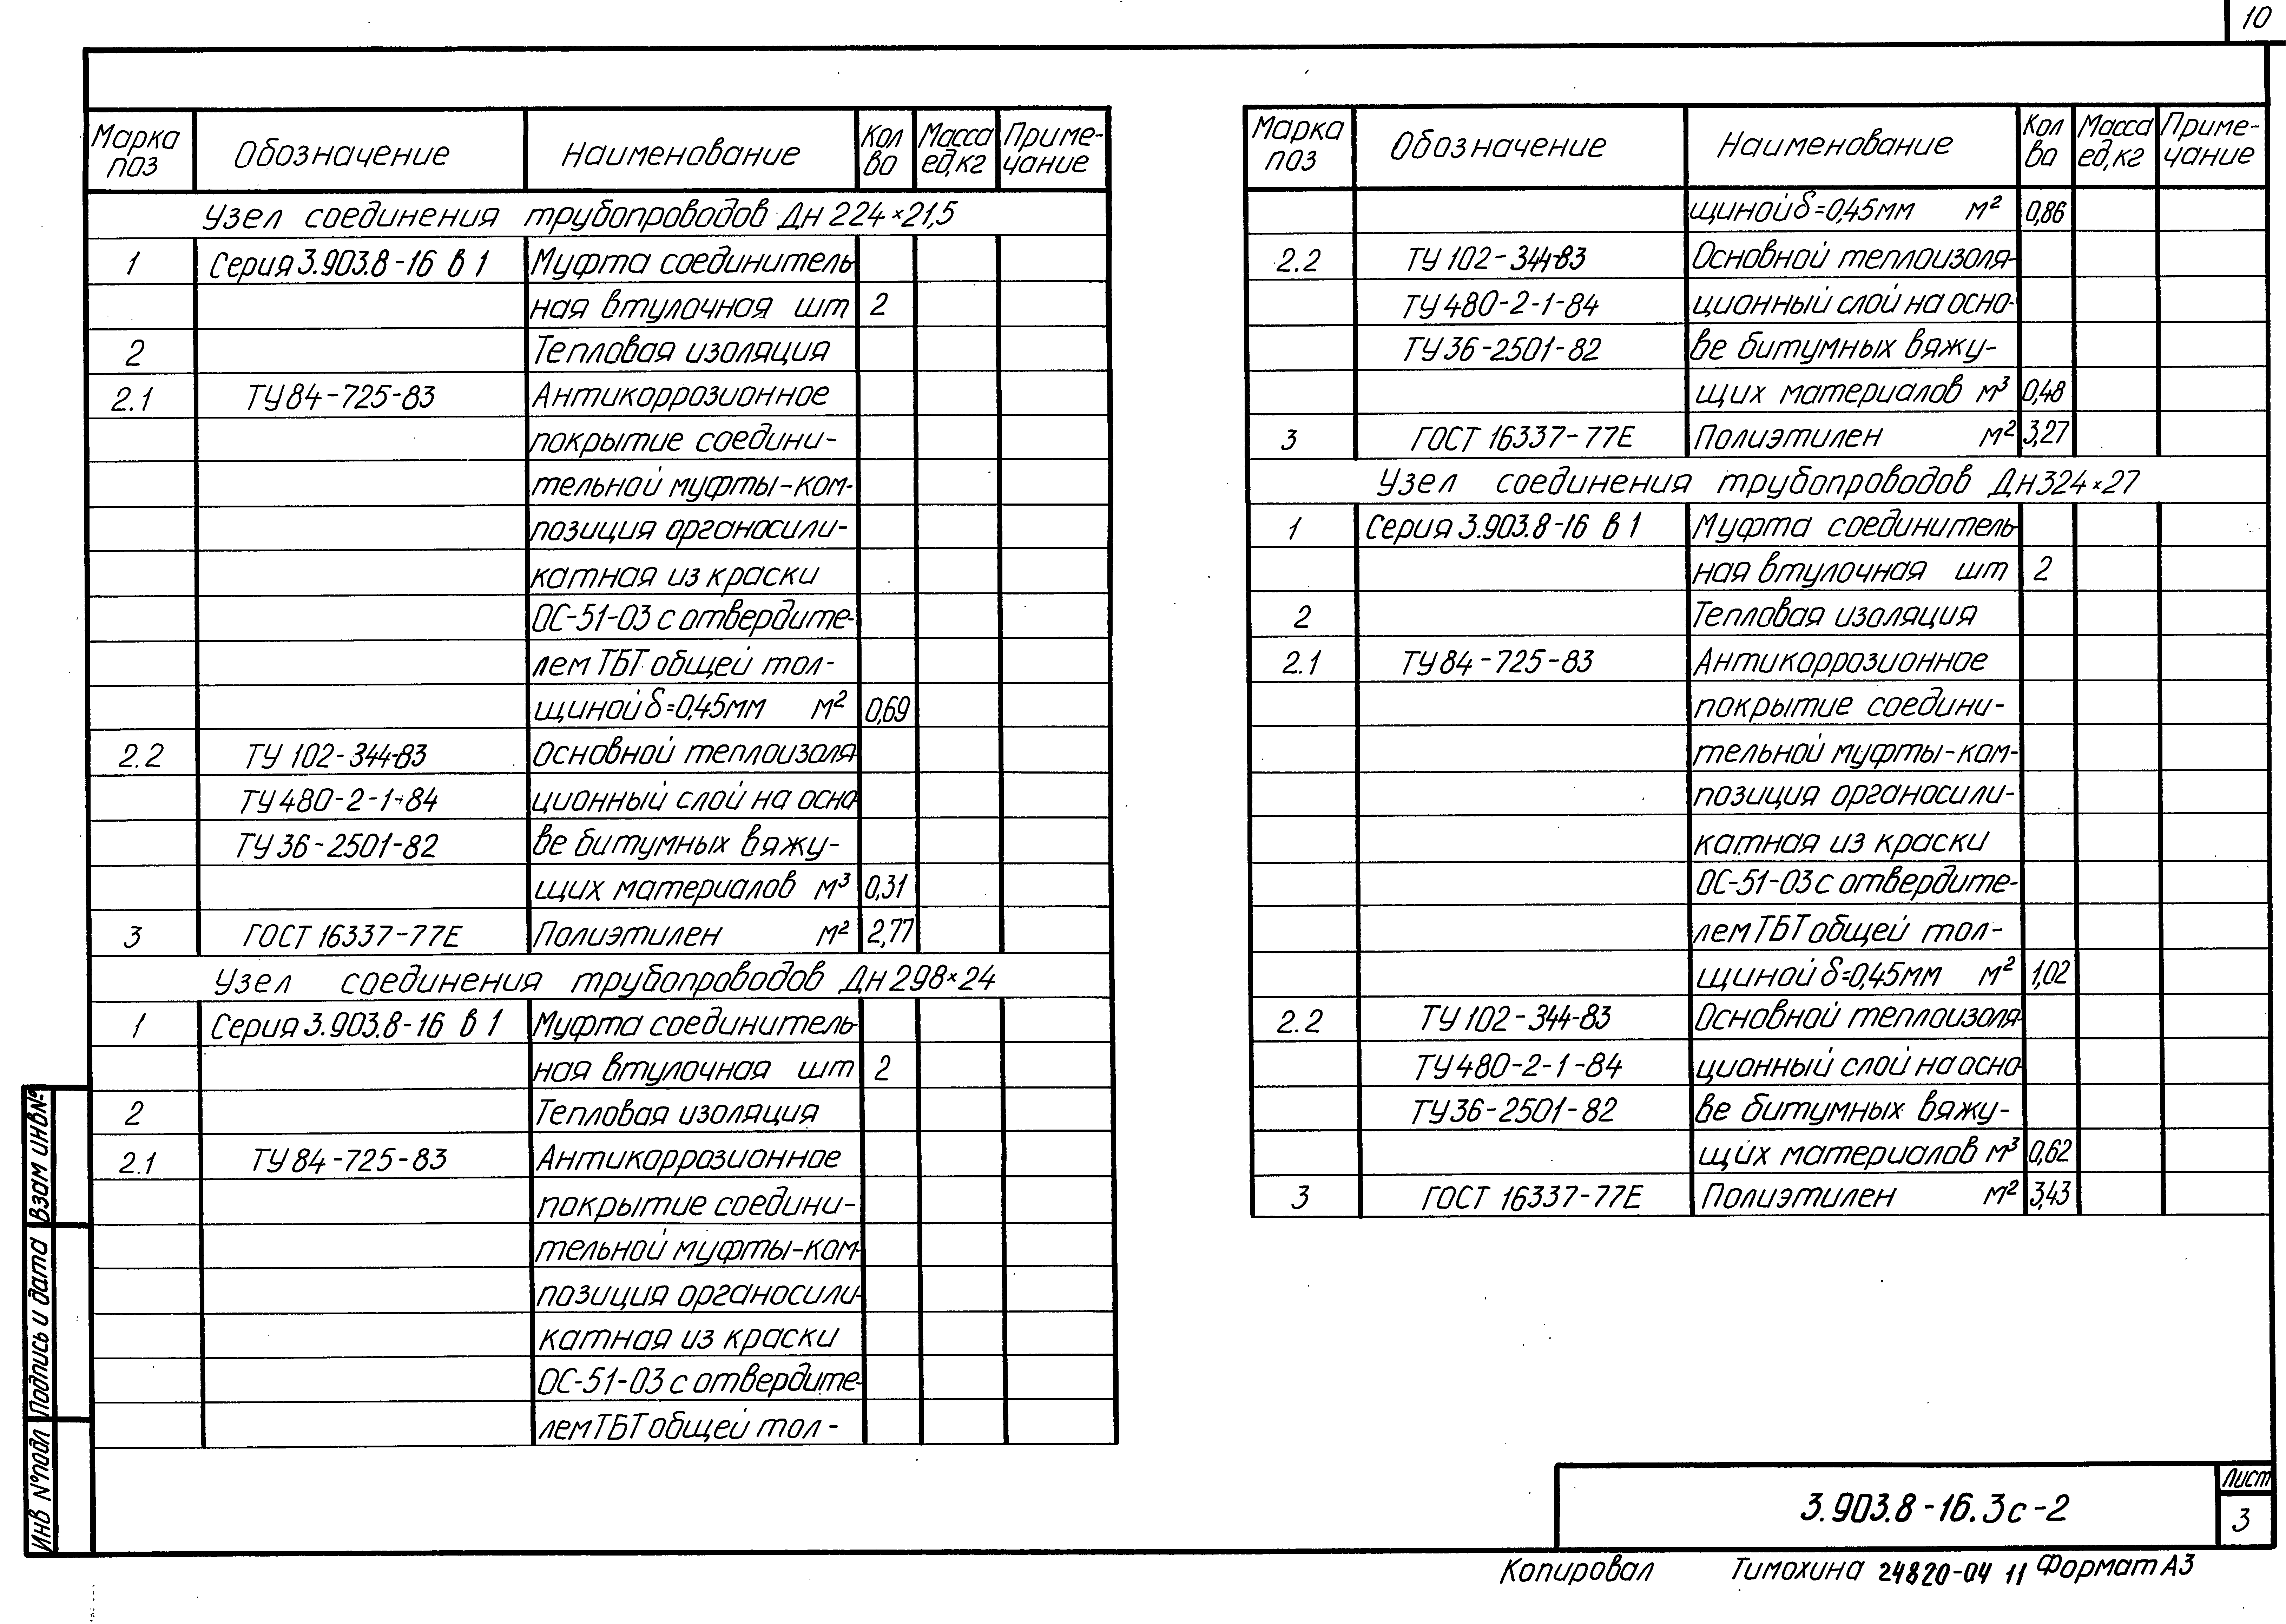 10
Марка поз Обозначение Наименование Кол во Масса ед, кг Приме- чание
Узел соединения трубопроводов Дн 224×21,5
1 Серия 3.903.8-16 в 1 Муфта соединитель-
ная втулочная шт 2
2 Тепловая изоляция
2.1 ТУ 84-725-83 Антикоррозионное
покрытие соедини-
тельной муфты-ком-
позиция органосили-
катная из краски
ОС-51-03 с отвердите-
лем ТБТ общей тол-
щиной δ=0,45мм м² 0,69
2.2 ТУ 102-344-83 Основной теплоизоля-
ТУ 480-2-1-84 ционный слой на осно-
ТУ 36-2501-82 ве битумных вяжу-
щих материалов м³ 0,31
3 ГОСТ 16337-77Е Полиэтилен м² 2,77
Узел соединения трубопроводов Дн 298×24
1 Серия 3.903.8-16 в 1 Муфта соединитель-
ная втулочная шт 2
2 Тепловая изоляция
2.1 ТУ 84-725-83 Антикоррозионное
покрытие соедини-
тельной муфты-ком-
позиция органосили-
катная из краски
ОС-51-03 с отвердите-
лем ТБТ общей тол-
Марка поз Обозначение Наименование Кол во Масса ед, кг Приме- чание
щиной δ=0,45мм м² 0,86
2.2 ТУ 102-344-83 Основной теплоизоля-
ТУ 480-2-1-84 ционный слой на осно-
ТУ 36-2501-82 ве битумных вяжу-
щих материалов м³ 0,48
3 ГОСТ 16337-77Е Полиэтилен м² 3,27
Узел соединения трубопроводов Дн 324×27
1 Серия 3.903.8-16 в 1 Муфта соединитель-
ная втулочная шт 2
2 Тепловая изоляция
2.1 ТУ 84-725-83 Антикоррозионное
покрытие соедини-
тельной муфты-ком-
позиция органосили-
катная из краски
ОС-51-03 с отвердите-
лем ТБТ общей тол-
щиной δ=0,45мм м² 1,02
2.2 ТУ 102-344-83 Основной теплоизоля-
ТУ 480-2-1-84 ционный слой на осно-
ТУ 36-2501-82 ве битумных вяжу-
щих материалов м³ 0,62
3 ГОСТ 16337-77Е Полиэтилен м² 3,43
Инв № подл Подпись и дата Взам инв №
3.903.8-16.3с-2
Лист
3
Копировал Тимохина 24820-04 11 Формат А3